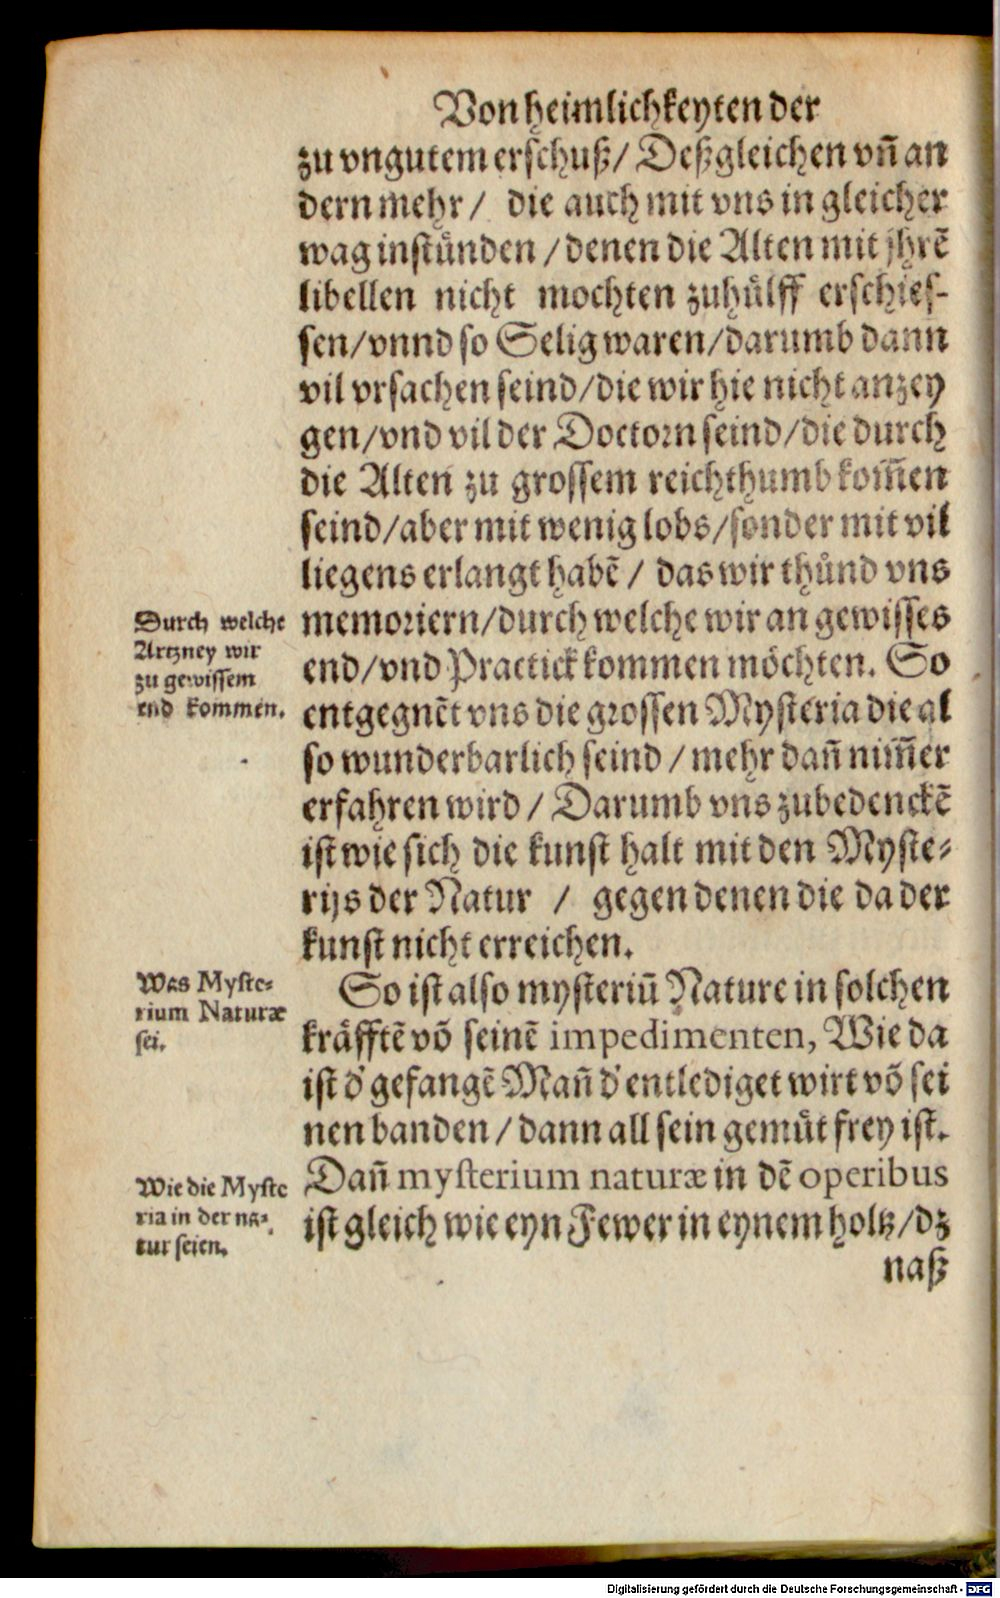 Von heimlichkeyten der
zu vngutem erschuß/ Deßgleichen vñ an
dern mehr/ die auch mit vns in gleicher
wag instünden /denen die Alten mit jhrē
libellen nicht mochten zuhülff erschies-
sen/vnnd so Selig waren/darumb dann
vil vrsachen seind/die wir hie nicht anzey
gen/vnd vil der Doctorn seind/die durch
die Alten zu grossem reichthumb kom̃en
seind/aber mit wenig lobs/sonder mit vil
liegens erlangt habē / das wir thůnd vns
memoriern/durch welche wir an gewisses
end/vnd Practick kommen möchten. So
entgegnēt vns die grossen Mysteria die al
so wunderbarlich seind / mehr dañ nim̃er
erfahren wird / Darumb vns zubedenckē
ist wie sich die kunst halt mit den Myste-
rijs der Natur / gegen denen die da der
kunst nicht erreichen.
So ist also mysteriū Nature in solchen
kräfftē võ seinē impedimenten, Wie da
ist d' gefangē Mañ d' entlediget wirt võ sei
nen banden/dann all sein gemůt frey ist.
Dañ mysterium naturæ in dē operibus
ist gleich wie eyn Fewer in eynem holtz/dz
naß
Durch welche
Artzney wir
zu gewissem
end kommen.
Was Myste-
rium Naturæ
sei.
Wie die Myste
ria in der na-
tur seien.
Digitalisierung gefördert durch die Deutsche Forschungsgemeinschaft - DFG